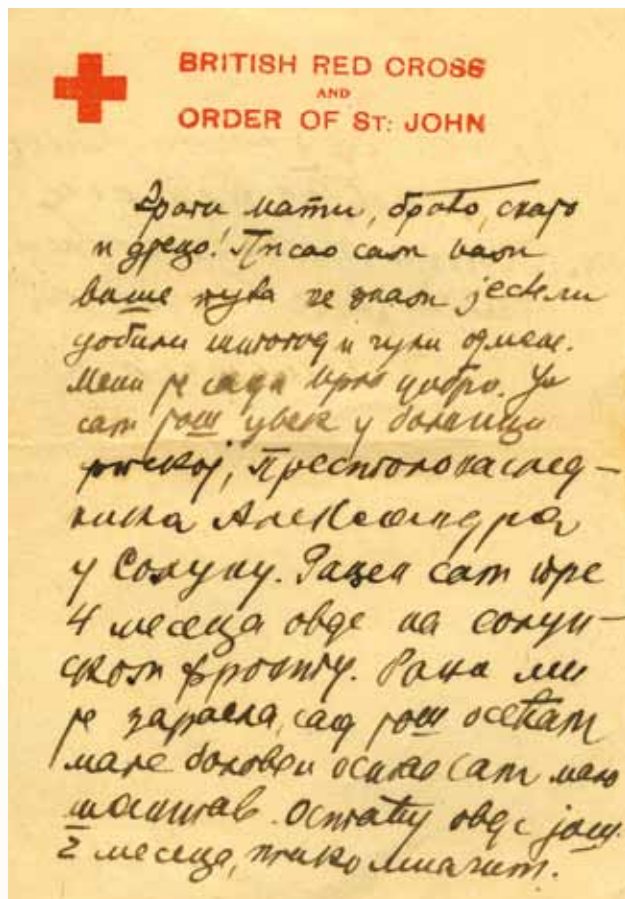 BRITISH RED CROSS
AND
ORDER OF ST: JOHN
Драги мати, брато, снајо
и децо! Писао сам вам
више пута не знам јесте ли
добили штогод и чули од мене.
Мени је сада врло добро. Ја
сам још увек у болници
Престолонаслед-
ника Александра
у Солуну. Рањен сам пре
4 месеца овде на солун-
ском фронту. Рана ми
је зарасла, сад још осећам
мале болове и остао сам мало
шантав. Остаћу овде још
2 месеца, тако мислим.